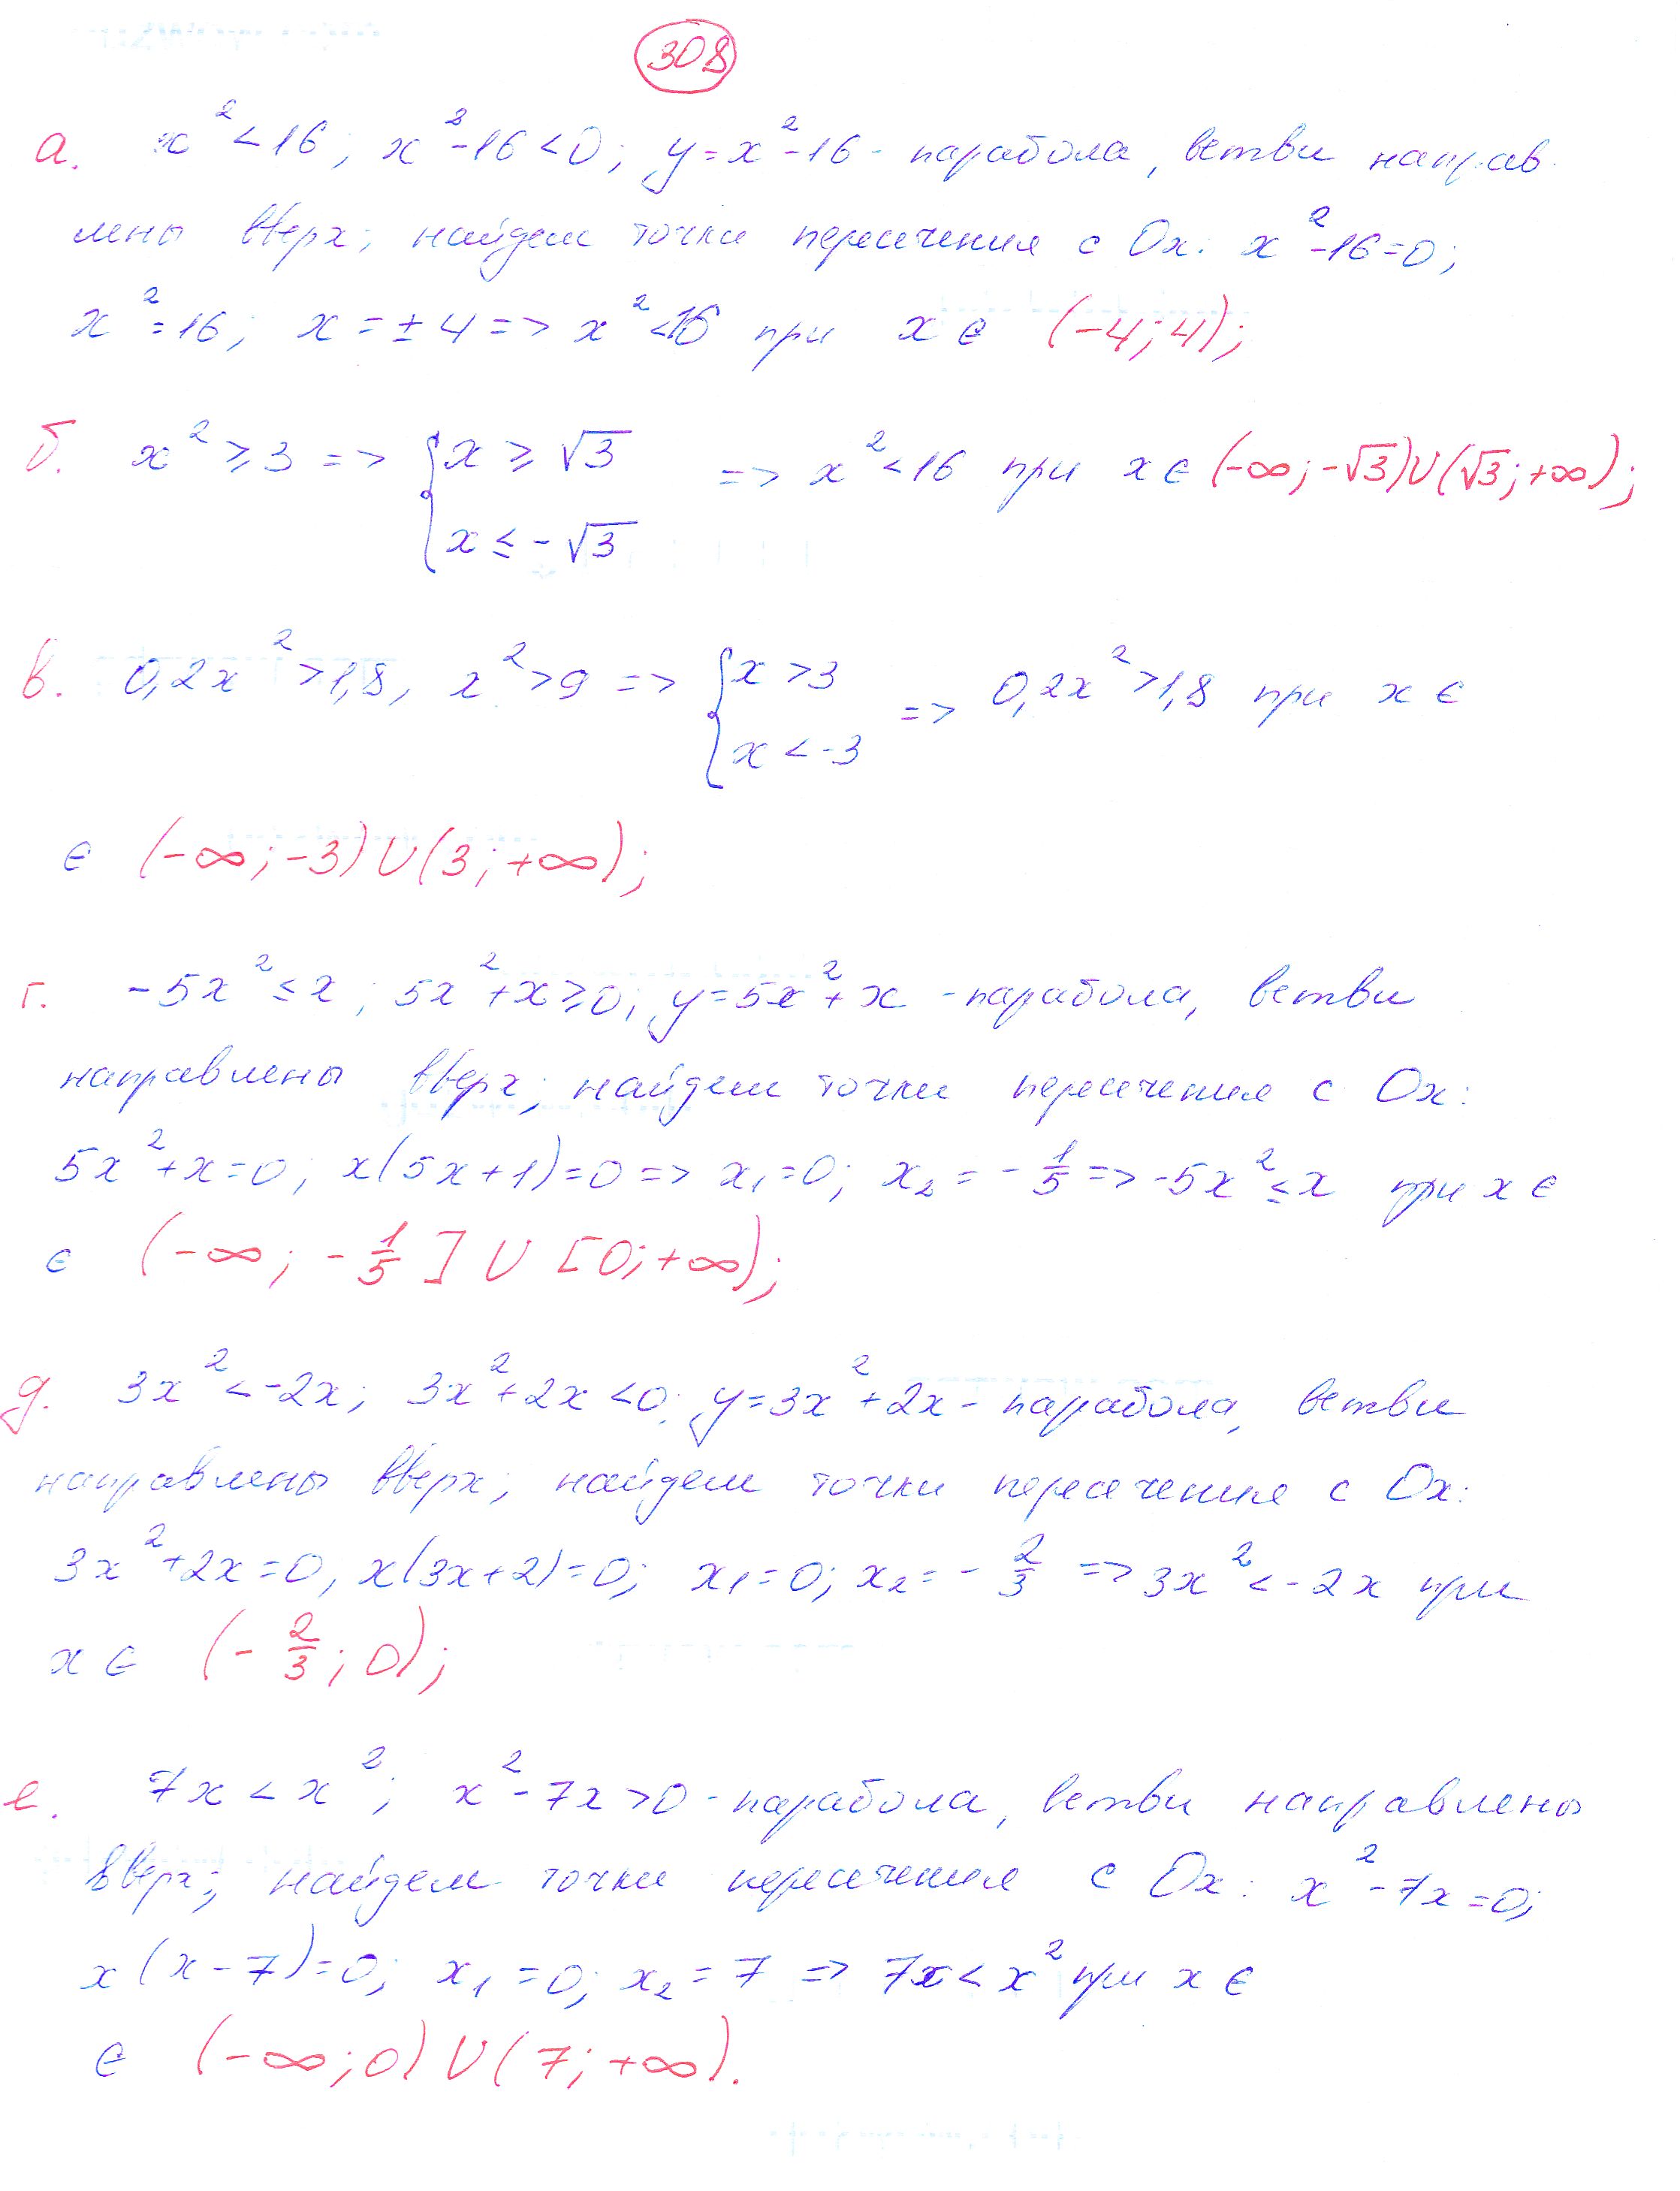 308
а. x² < 16; x² - 16 < 0; y = x² - 16 - парабола, ветви направ
лены вверх; найдем точки пересечения с Ox: x² - 16 = 0;
x² = 16; x = ± 4 => x² < 16 при x ∈ (-4; 4);
б. x² ≥ 3 => { x ≥ √3 => x² < 16 при x ∈ (-∞; -√3) ∪ (√3; +∞);
x ≤ -√3
в. 0,2x² > 1,8, x² > 9 => { x > 3 => 0,2x² > 1,8 при x ∈
x < -3
∈ (-∞; -3) ∪ (3; +∞);
г. -5x² ≤ x; 5x² + x ≥ 0; y = 5x² + x - парабола, ветви
направлены вверх; найдем точки пересечения с Ox:
5x² + x = 0; x(5x + 1) = 0 => x₁ = 0; x₂ = - 1/5 => -5x² ≤ x при x ∈
∈ (-∞; - 1/5] ∪ [0; +∞);
д. 3x² < -2x; 3x² + 2x < 0; y = 3x² + 2x - парабола, ветви
направлены вверх; найдем точки пересечения с Ox:
3x² + 2x = 0, x(3x + 2) = 0; x₁ = 0; x₂ = - 2/3 => 3x² < -2x при
x ∈ (- 2/3; 0);
е. 7x < x²; x² - 7x > 0 - парабола, ветви направлены
вверх; найдем точки пересечения с Ox: x² - 7x = 0;
x(x - 7) = 0; x₁ = 0; x₂ = 7 => 7x < x² при x ∈
∈ (-∞; 0) ∪ (7; +∞).